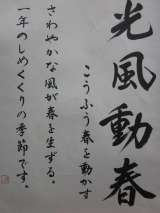 光風動春
こうふう春を動かす
さわやかな風が春を生ずる。
一年のしめくくりの季節です。